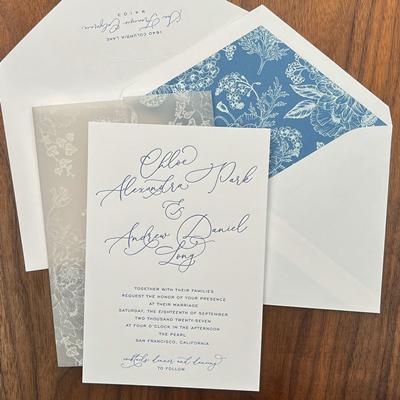 Chloe
Alexandra Park
&
Andrew Daniel
Long
TOGETHER WITH THEIR FAMILIES
REQUEST THE HONOR OF YOUR PRESENCE
AT THEIR MARRIAGE
SATURDAY, THE EIGHTEENTH OF SEPTEMBER
TWO THOUSAND TWENTY-SEVEN
AT FOUR O'CLOCK IN THE AFTERNOON
THE PEARL
SAN FRANCISCO, CALIFORNIA
cocktails dinner and dancing
TO FOLLOW
1640 COLUMBIA LANE
94103